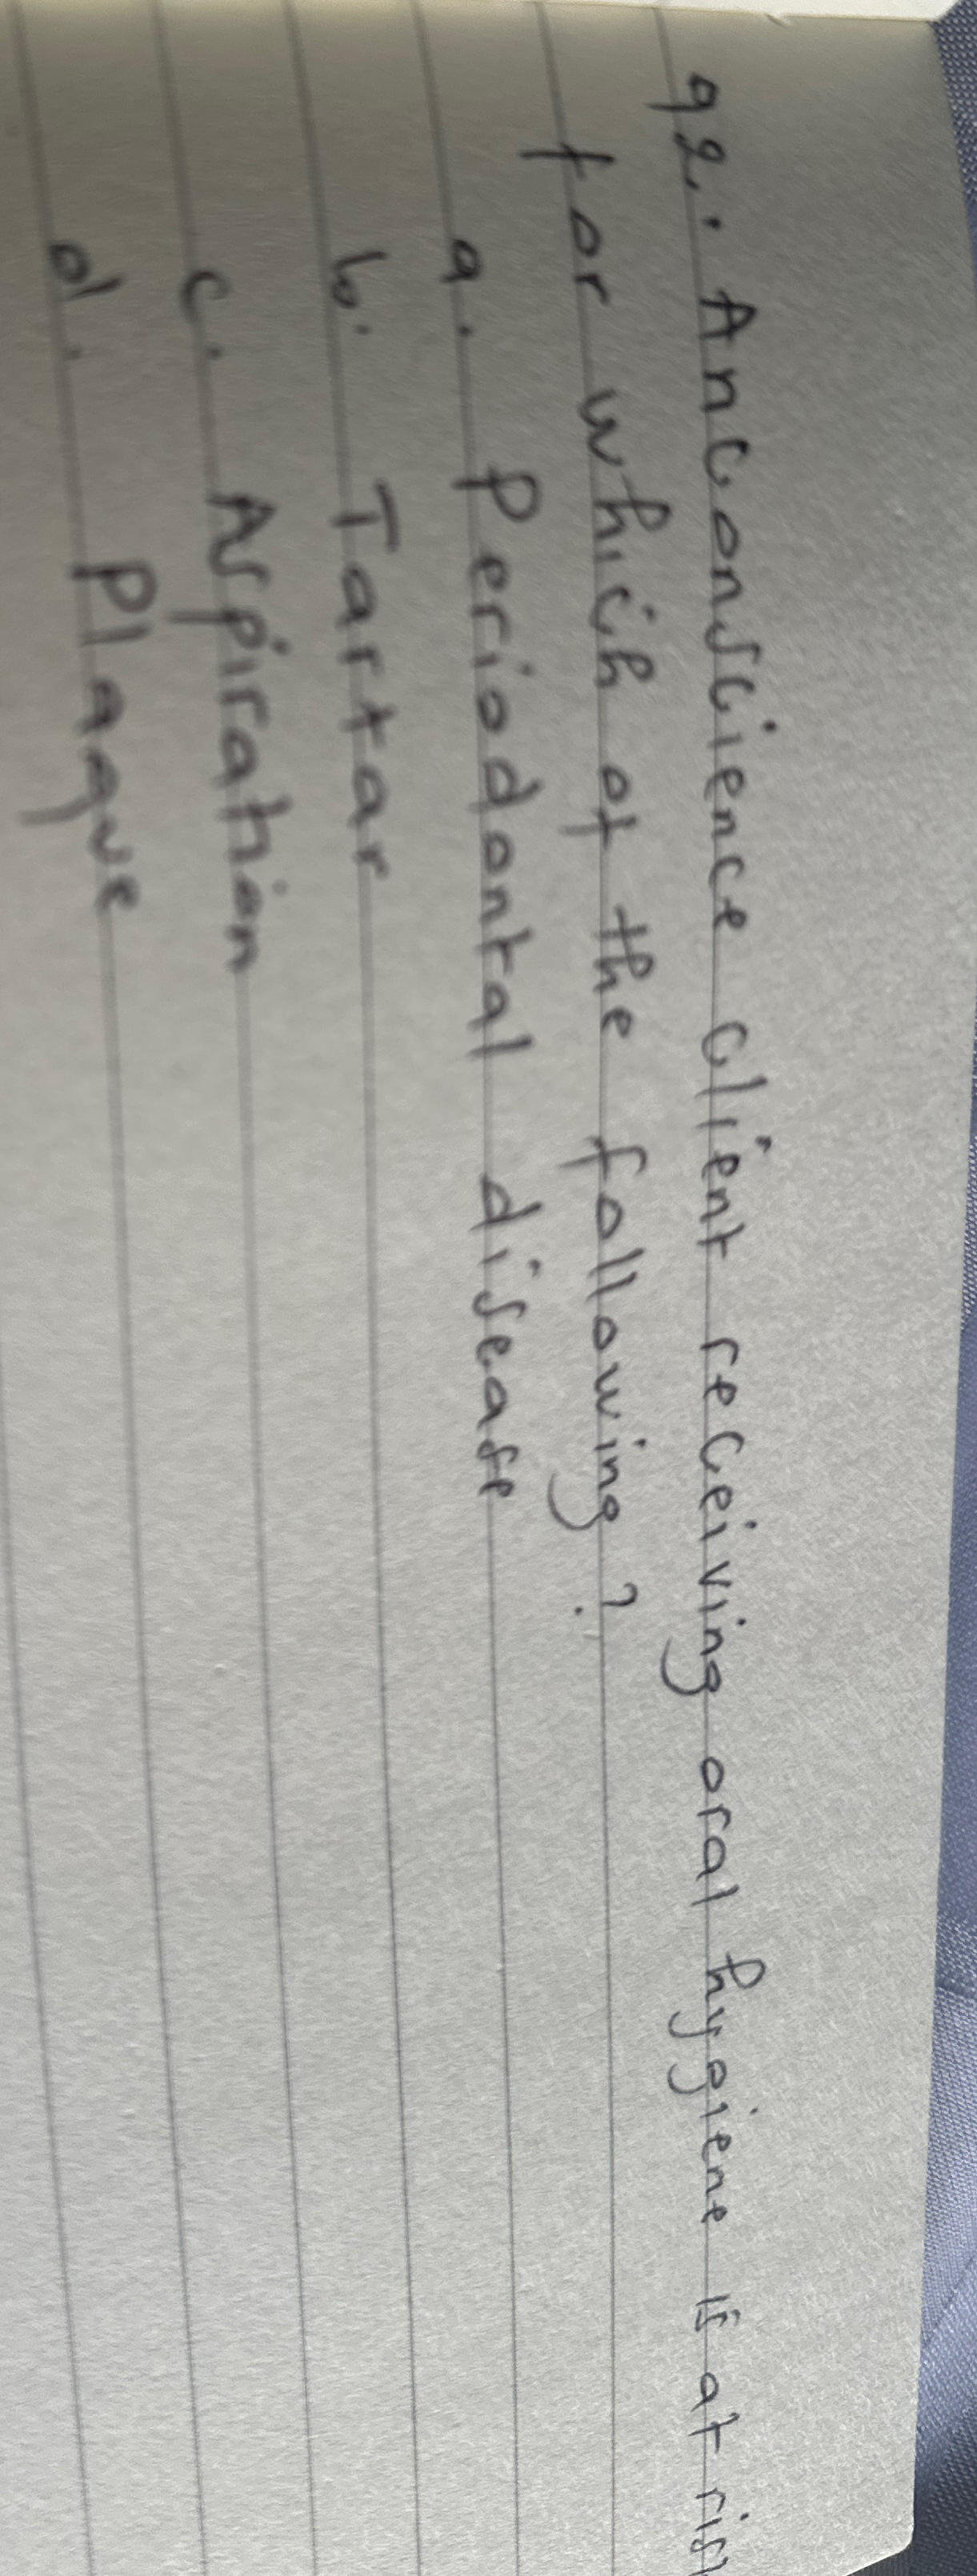 92. Anconscience client receiving oral hygiene is at risk
for which of the following?
a. Periodontal disease
b. Tartar
c. Aspiration
d. Plaque